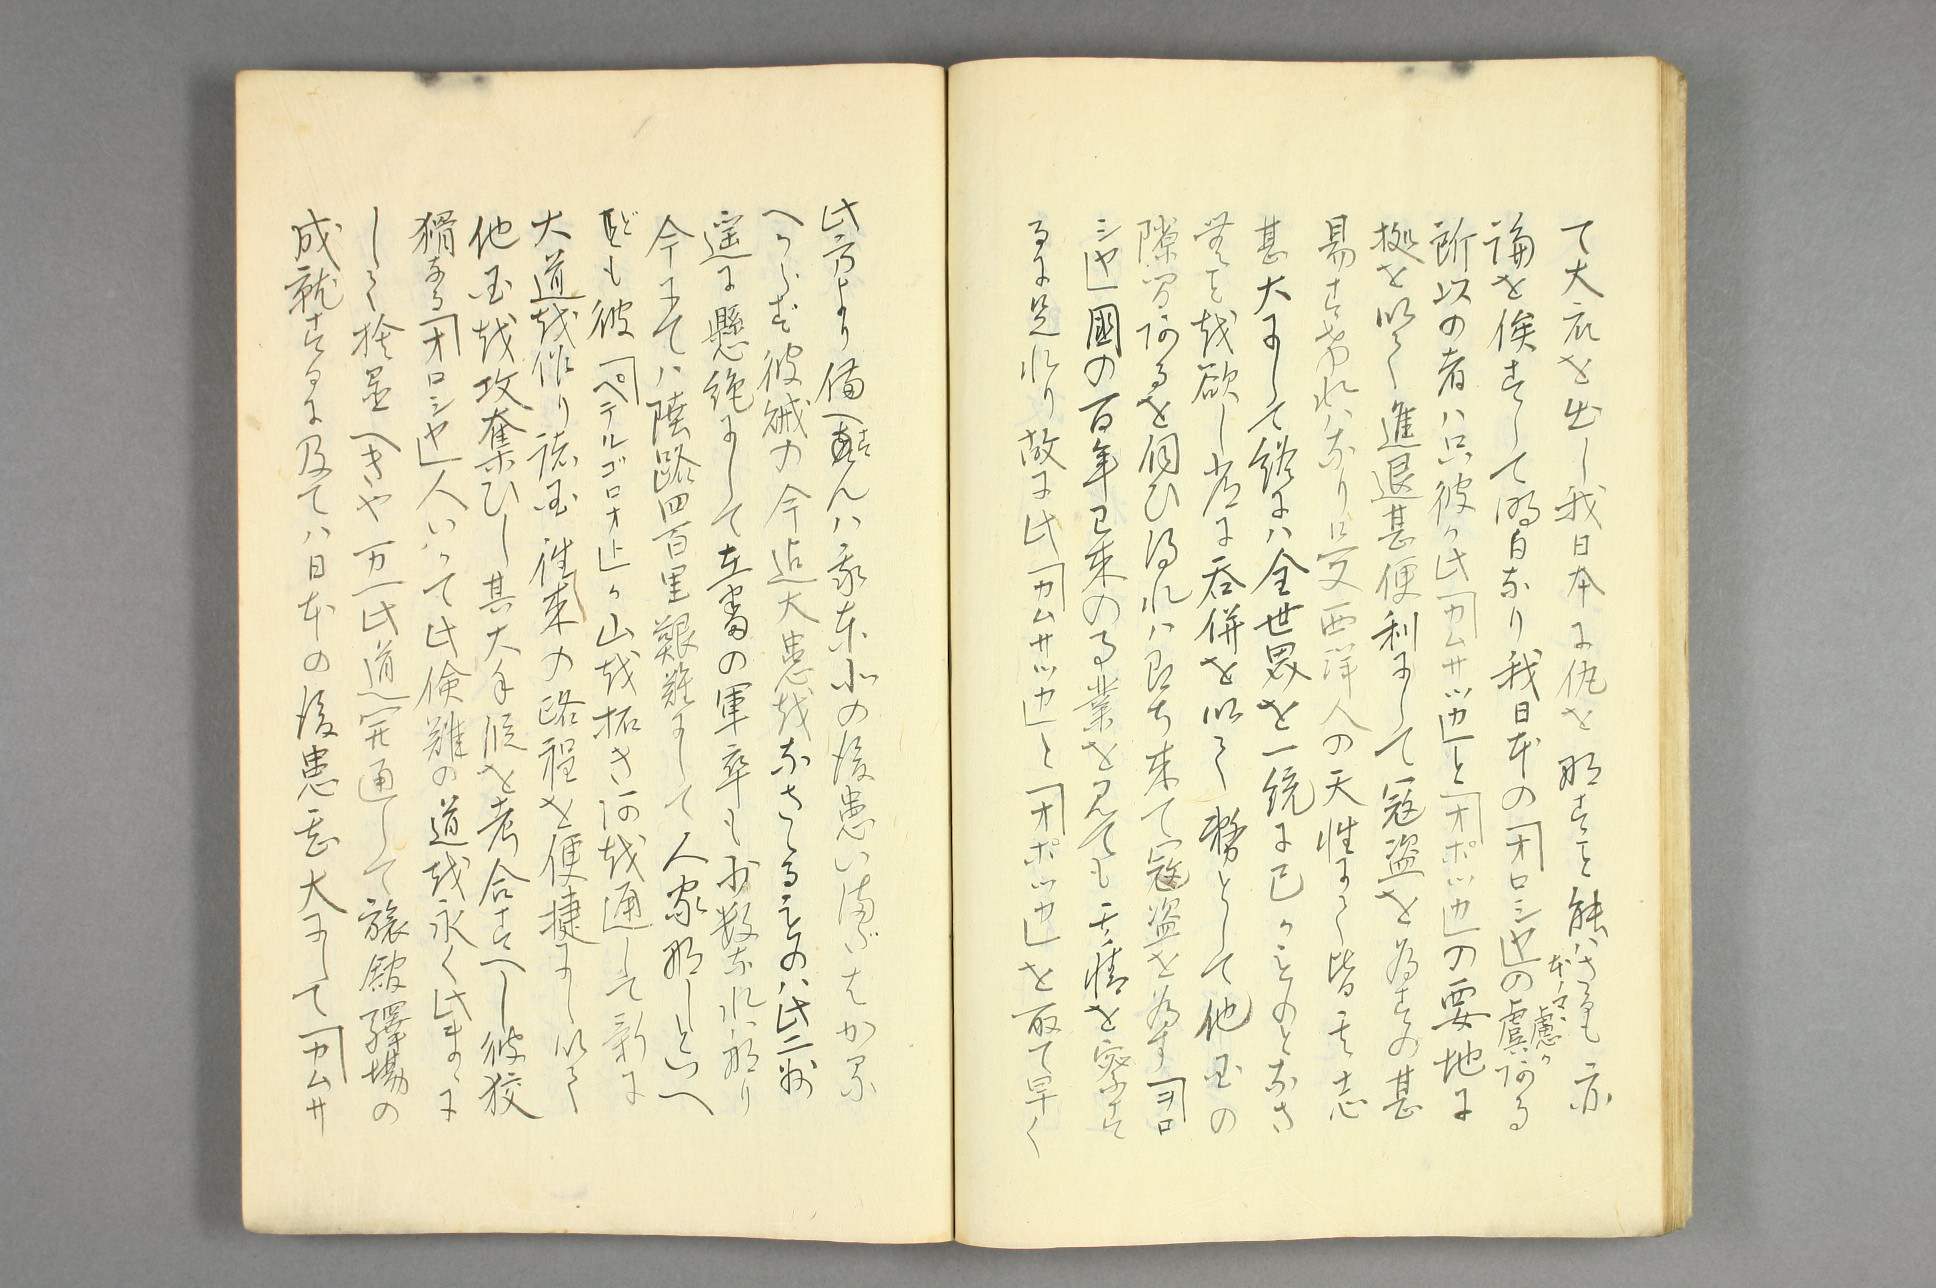 て大衣を出し我日本に仇を那すこと能はさるも亦
論を俟すして明白なり我日本の「オロシヤ」の虞ある
本ノマヽ慮カ
所以の者ハ只彼か此「カムサツカ」と「オホツカ」の要地に
拠を以て進退甚便利にして寇盗を為すの甚
易すけれハなり只又西洋人の天性にて皆其志
甚大にして終にハ全世界を一統に己かものとなさ
んこと越欲し常に呑併を以て務として他国の
隙間あるを伺ひ得れハ即ち来て寇盗を為す「ヲロ
シヤ」國の百年已来の事業を見ても其情を察す
るに足れり故に此「カムサツカ」と「オホツカ」を取て早く
此方より備へすんハ我東北の後患いまだはかる
へからず彼鹹の今迠大患越なさゝるものハ此二州
遥に懸絶にして在番の軍卒も小数なれハ那り
今にてハ陸路四百里艱難にして人家那しといへ
ども彼「ペテルゴロオ」か山越拓き河越通して新に
大道越作り諸国往来の路程を便捷にし以て
他国越攻奪ひし其大手段を考合すへし彼狡
猾なる「オロシヤ」人いかて此倹難の道越永く此まゝに
して捨置へきや万一此道開通して旅館驛場の
成就するに及てハ日本の後患甚大にして「カムサ